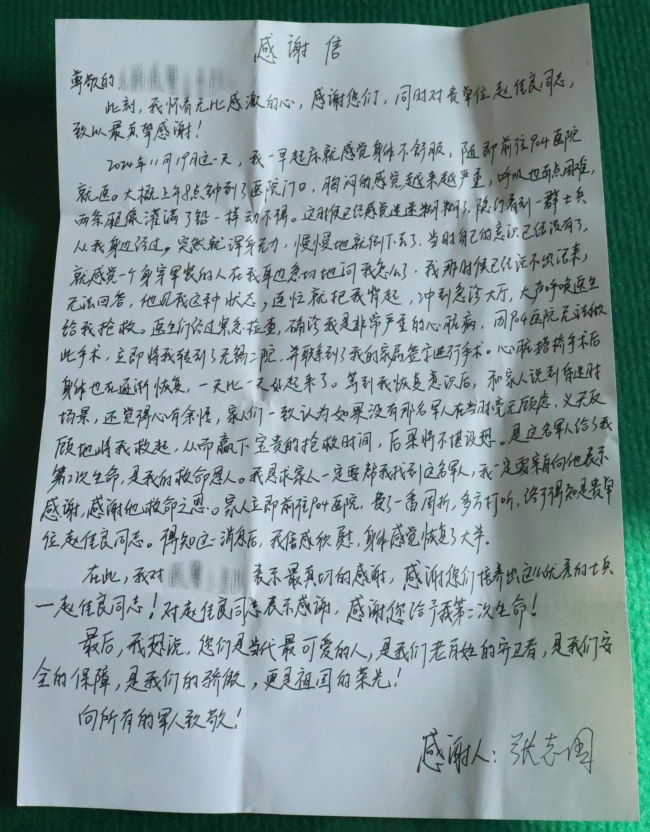 感谢信
尊敬的
此刻，我怀着无比感激的心，感谢您们，同时对贵单位赵佳良同志，
致以最真挚感谢！
2020年11月19日这一天，我一早起床就感觉身体不舒服，随即前往904医院
就医。大概上午8点钟到了医院门口，胸闷的感觉越来越严重，呼吸也有点困难，
两条腿像灌满了铅一样动不得。这时候已经感觉迷迷糊糊了，隐约看到一群士兵
从我身边经过。突然就浑身无力，慢慢地就倒下去了，当时自己的意识已经没有了，
就感觉一个身穿军装的人在我身边急切地问我怎么了，我那时候已经说不出话来，
无法回答，他见我这种状态，连忙就把我背起，冲到急诊大厅，大声呼唤医生
给我抢救。医生们经过紧急检查，确诊我是非常严重的心脏病，因904医院无法做
此手术，立即将我转到了无锡二院，并联系到了我的家属签字进行手术。心脏搭桥手术后
身体也在逐渐恢复，一天比一天好起来了。等到我恢复意识后，和家人说到当时
场景，还觉得心有余悸，家人们一致认为如果没有那名军人在当时毫无顾虑，义无反
顾地将我救起，从而赢下宝贵的抢救时间，后果将不堪设想。是这名军人给了我
第2次生命，是我的救命恩人。我恳求家人一定要帮我找到这名军人，我一定要亲自向他表示
感谢，感谢他救命之恩。家人立即前往904医院，费了一番周折，多方打听，终于得知是贵单
位赵佳良同志。得知这一消息后，我倍感欣慰，身体感觉恢复了大半。
在此，我对 表示最真切的感谢，感谢您们培养出这么优秀的士兵
—赵佳良同志！对赵佳良同志表示感谢，感谢您给予我第二次生命！
最后，我想说，您们是当代最可爱的人，是我们老百姓的守卫者，是我们安
全的保障，是我们的骄傲，更是祖国的荣光！
向所有的军人致敬！
感谢人：张志国